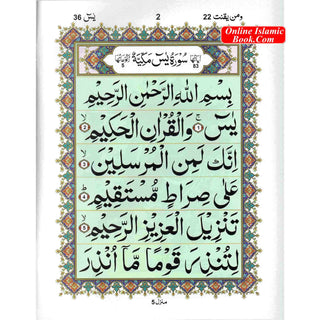 يٰسٓ 36
2
ومن يقنت 22
Online Islamic
Book.Com
سُوْرَةُ يٰسٓ مَكِّيَّةٌ
83
5
بِسْمِ اللّٰهِ الرَّحْمٰنِ الرَّحِيْمِ
يٰسٓ ۝1 وَالْقُرْاٰنِ الْحَكِيْمِ ۝2
اِنَّكَ لَمِنَ الْمُرْسَلِيْنَ ۝3
عَلٰى صِرَاطٍ مُّسْتَقِيْمٍ ۝4
تَنْزِيْلَ الْعَزِيْزِ الرَّحِيْمِ ۝5
لِتُنْذِرَ قَوْمًا مَّآ اُنْذِرَ
منزل 5